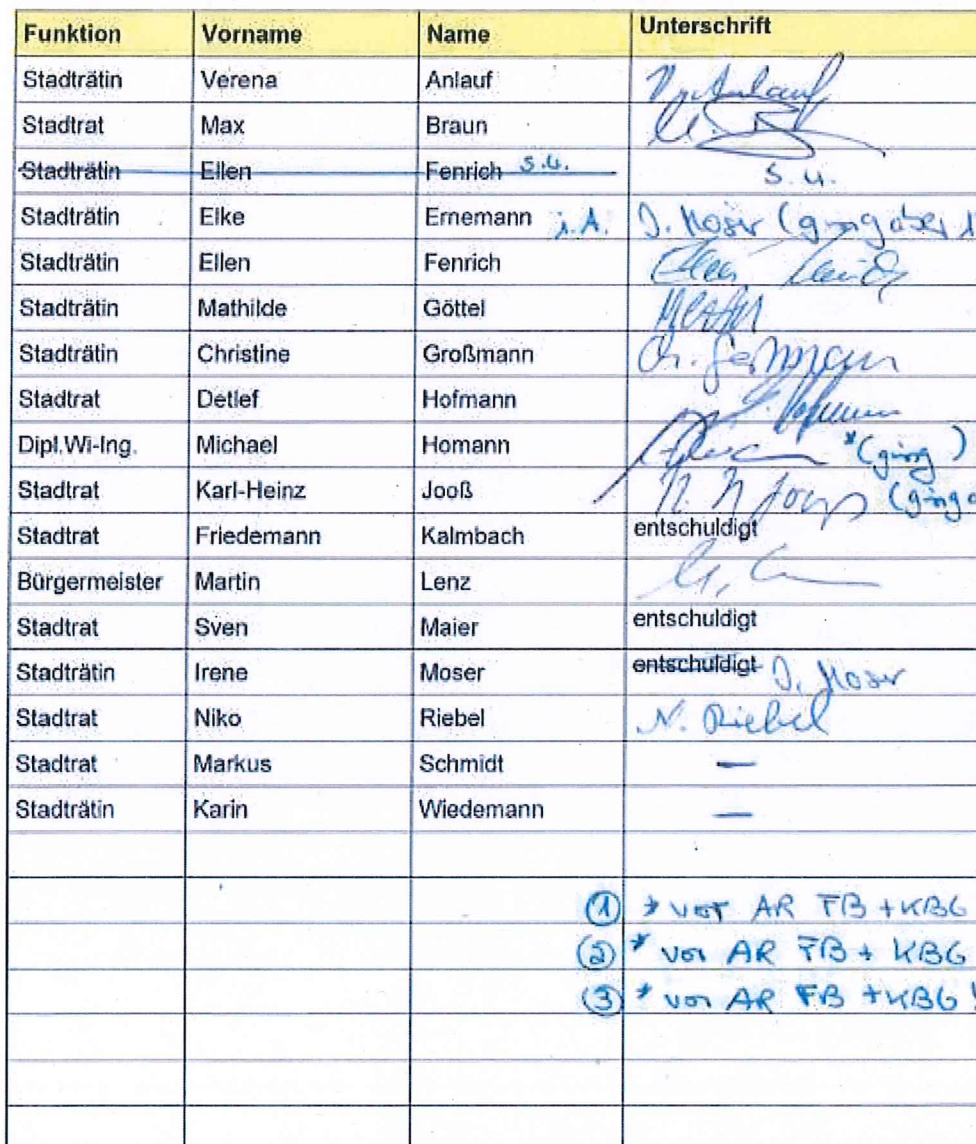 Funktion Vorname Name Unterschrift
Stadträtin Verena Anlauf
Stadtrat Max Braun
Stadträtin Ellen Fenrich s.u. s.u.
Stadträtin Elke Ernemann i.A. I. Moser (ging aber
Stadträtin Ellen Fenrich
Stadträtin Mathilde Göttel
Stadträtin Christine Großmann
Stadtrat Detlef Hofmann
Dipl.Wi-Ing. Michael Homann *(ging)
Stadtrat Karl-Heinz Jooß (ging
Stadtrat Friedemann Kalmbach entschuldigt
Bürgermeister Martin Lenz
Stadtrat Sven Maier entschuldigt
Stadträtin Irene Moser entschuldigt I. Moser
Stadtrat Niko Riebel N. Riebel
Stadtrat Markus Schmidt —
Stadträtin Karin Wiedemann —
① * vor AR FB + KBG
② * vor AR FB + KBG
③ * vor AR FB + KBG !